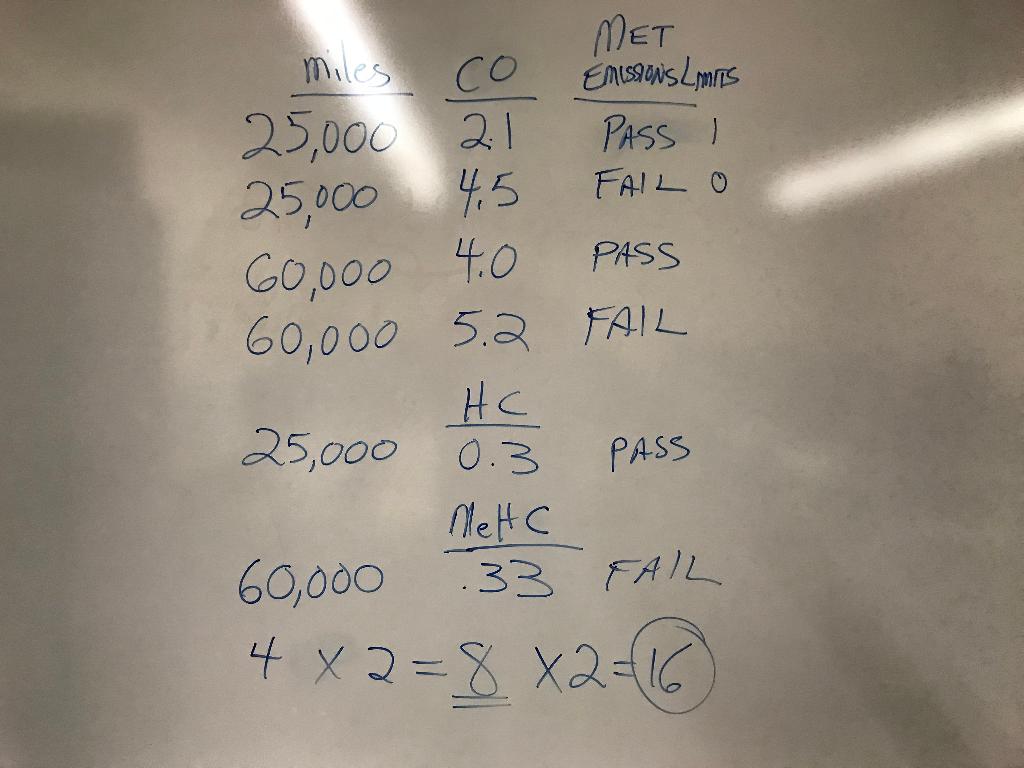 MET
miles CO EMISSIONS LIMITS
25,000 2.1 PASS 1
25,000 4.5 FAIL 0
60,000 4.0 PASS
60,000 5.2 FAIL
HC
25,000 0.3 PASS
MeHC
60,000 .33 FAIL
4 X 2 = 8 X2=16